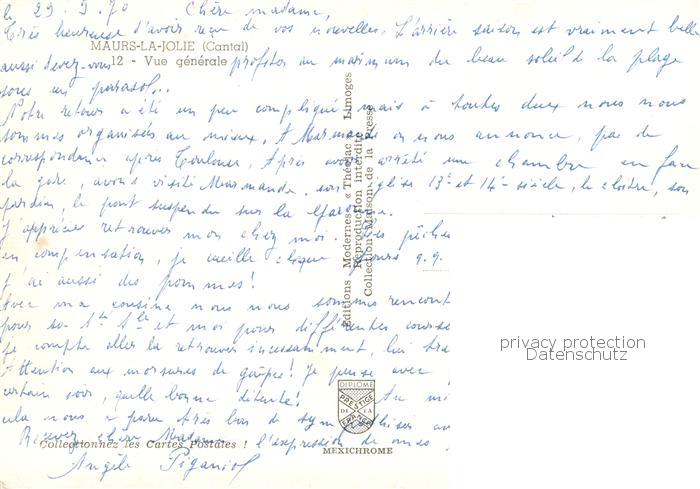 le 29.9.70 Chère madame,
Très heureuse d'avoir reçu de vos nouvelles. L'arrière saison est vraiment belle
MAURS-LA-JOLIE (Cantal)
12 - Vue générale
aussi devez-vous profiter au maximum du beau soleil de la plage
sous un parasol...
Notre retour a été un peu compliqué mais à toutes deux nous nous
sommes organisées au mieux. A Marmande on nous annonce, pas de
correspondance après Toulouse. Après avoir arrêté une chambre en face
la gare, avons visité Marmande, son église 13e et 14e siècle, le cloître, son
jardin, le pont suspendu sur la Garonne.
J'apprécie retrouver mon chez moi. pêches
en compensation, je cueille jours q.q.
J'ai aussi des pommes!
Avec ma cousine nous nous sommes rencont
pour sa et moi pour différentes courses
je compte aller la retrouver incessamment, lui
Attention aux morsures de guêpes! Je pense avec
certain soir, quelle bonne détente! Au mi
cela nous a paru très bon de
Recevez chère Madame l'expression de mes
Angèle Piganiol
Editions Modernes « Théojac » Limoges
Reproduction Interdite
Collection Maison de la Presse
privacy protection
Datenschutz
DIPLOME
PRESTIGE
DE LA
FRANCE
Collectionnez les Cartes Postales !
MEXICHROME